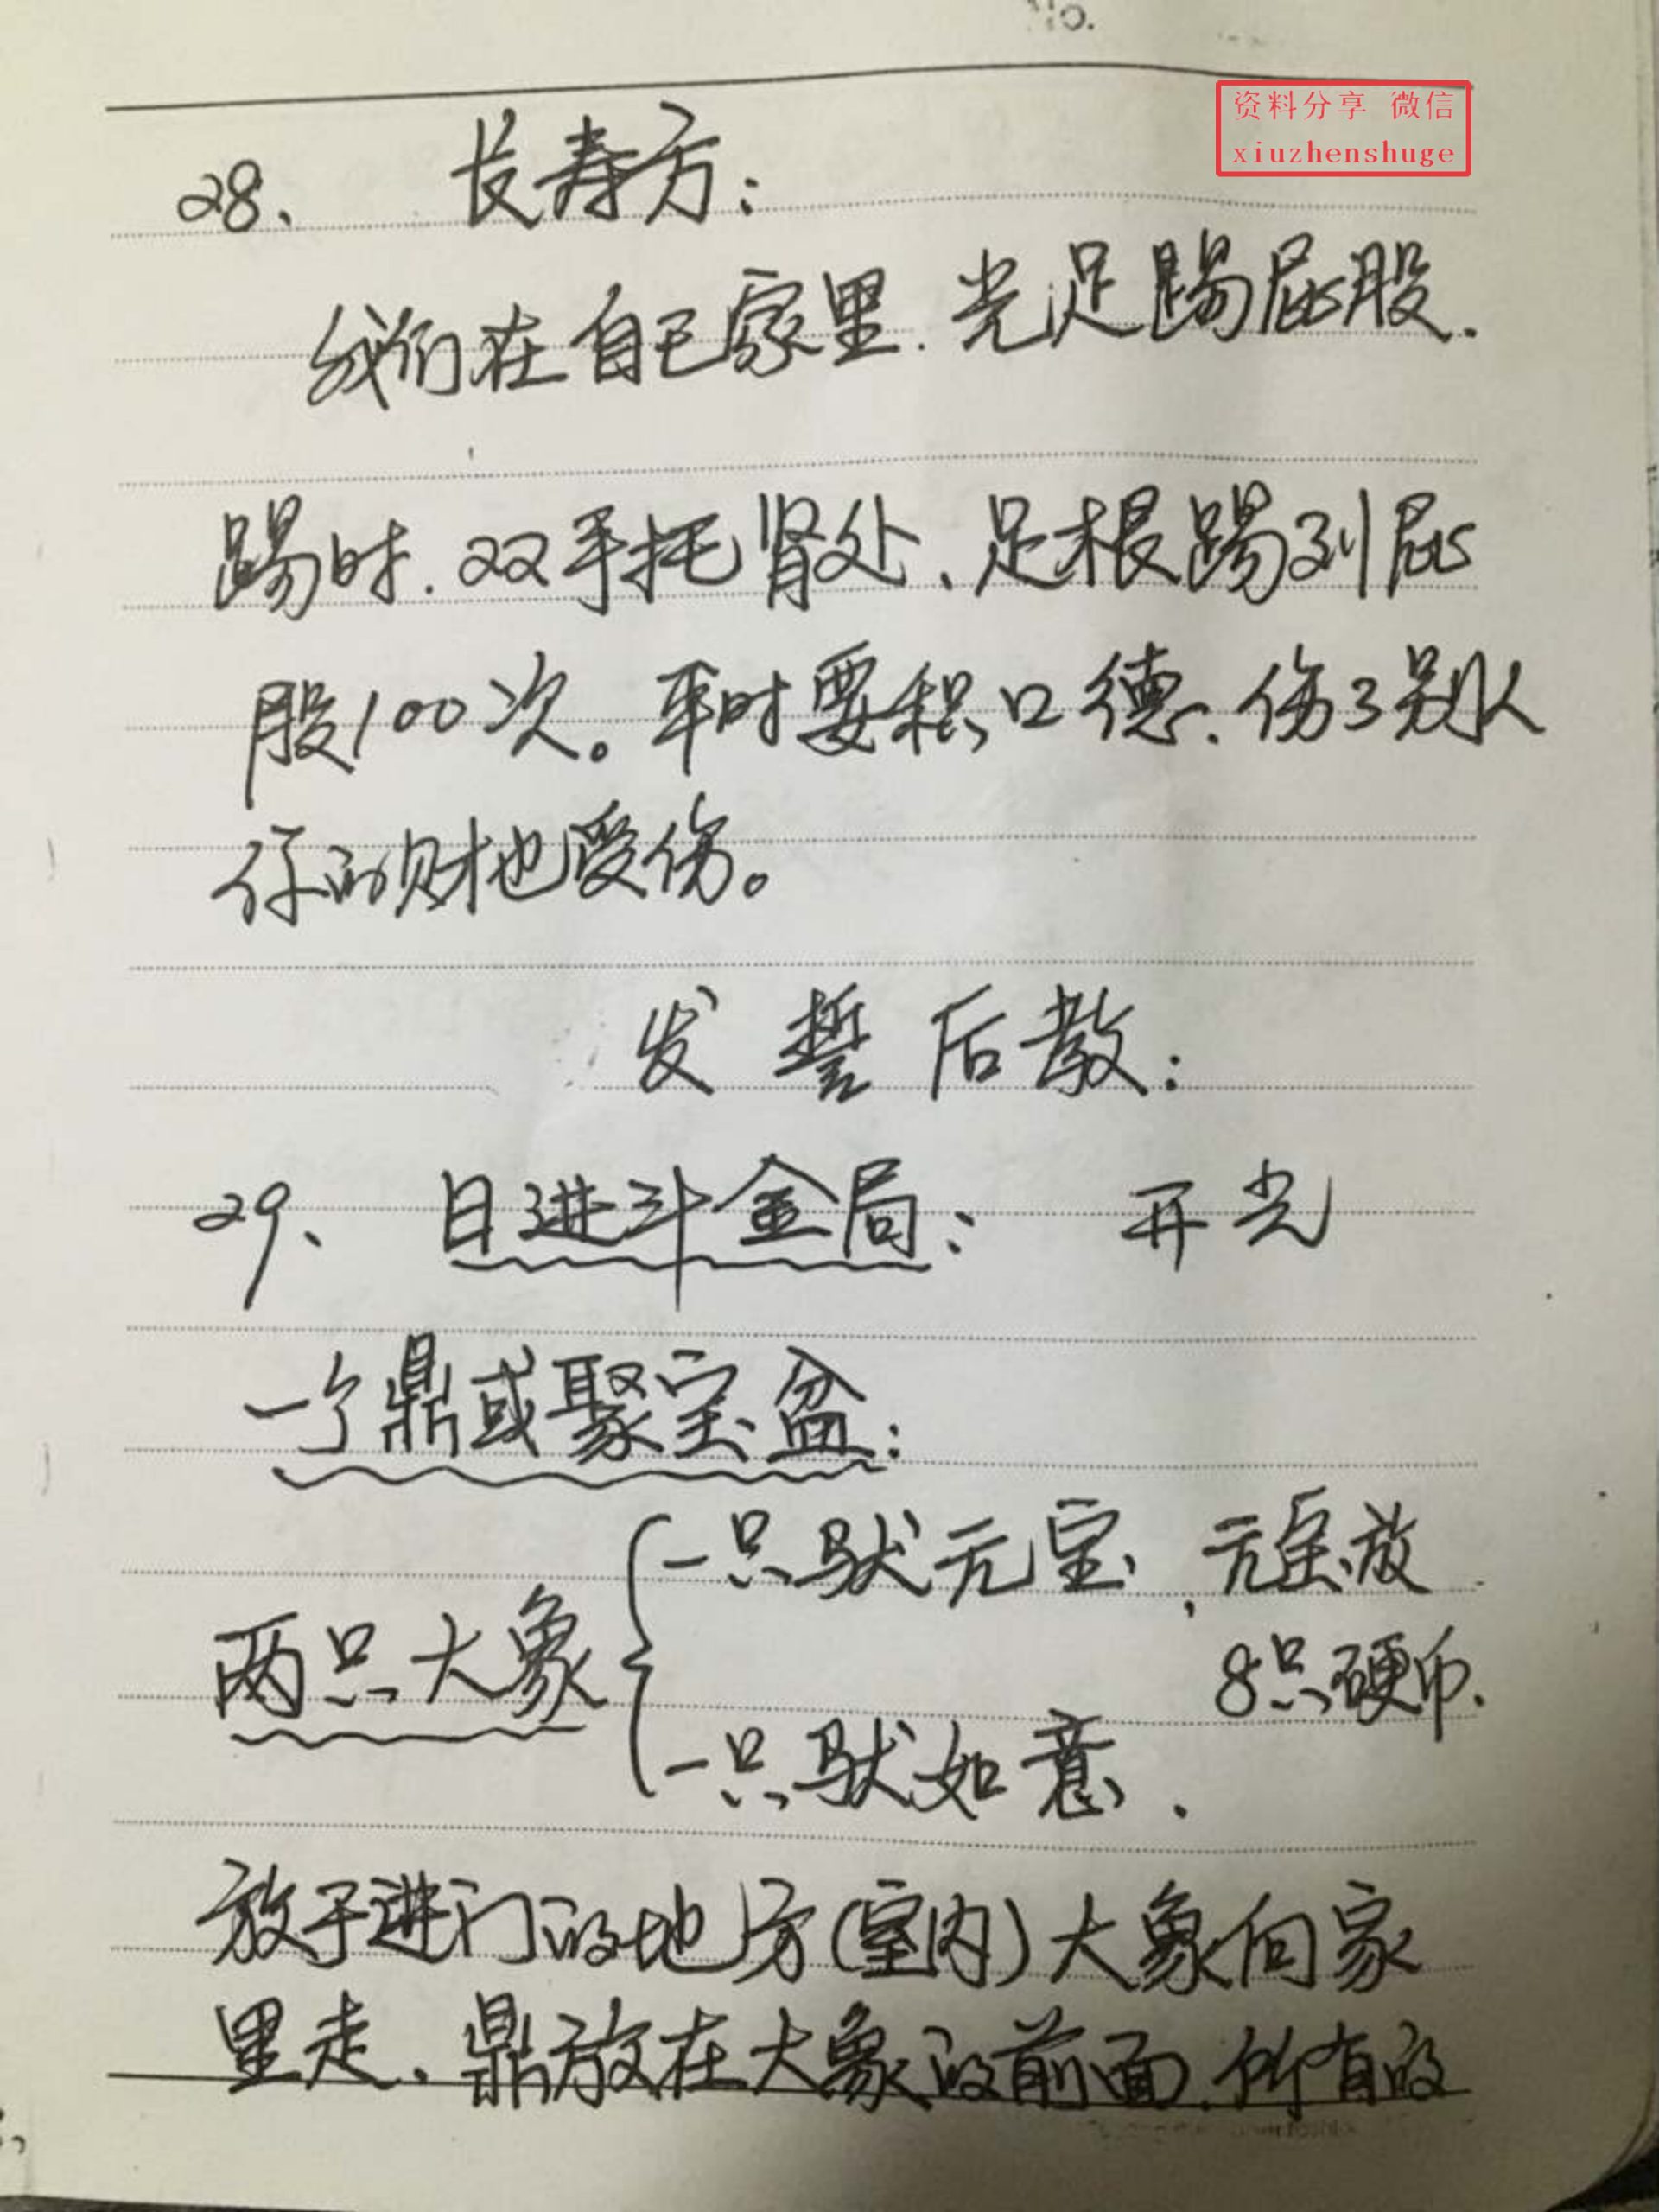 No.
资料分享 微信
xiuzhenshuge
28、 长寿方：
我们在自己家里.光足踢屁股.
踢时.双手托肾处、足根踢到屁
股100次。平时要积口德、伤了别人
你的财也受伤。
发誓后教：
29、 日进斗金局： 开光
一个鼎或聚宝盆：
两只大象
一只驮元宝、元宝放
8只硬币.
一只驮如意.
放于进门的地方(室内)大象向家
里走.鼎放在大象的前面.所有的